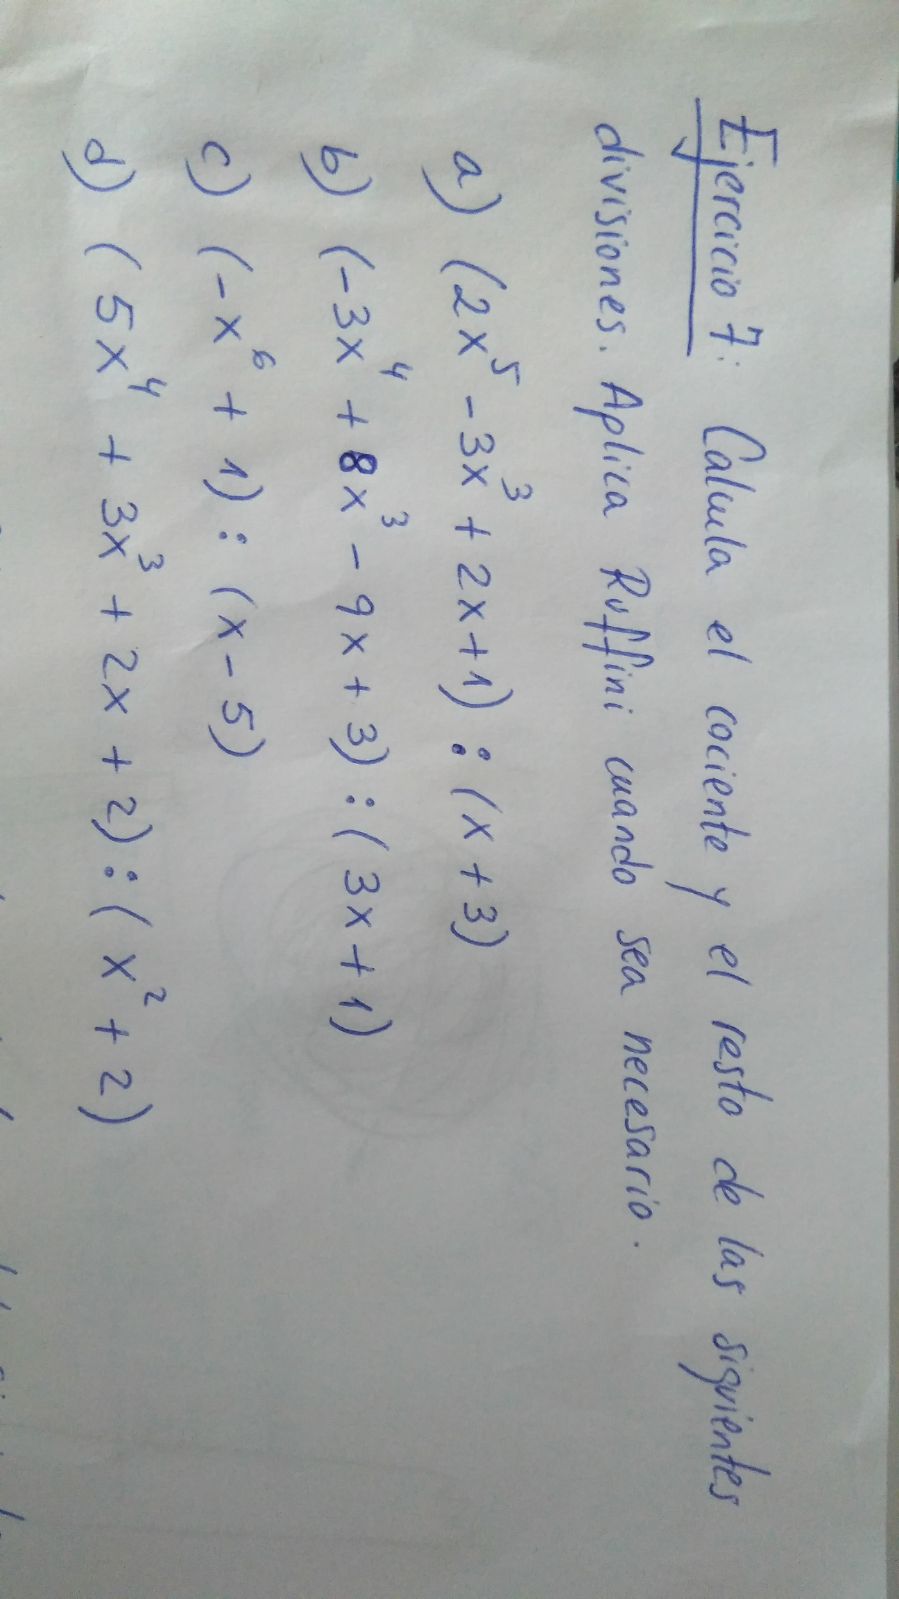 Ejercicio 7: Calcula el cociente y el resto de las siguientes
divisiones. Aplica Ruffini cuando sea necesario.
a) (2x⁵ - 3x³ + 2x + 1) : (x + 3)
b) (-3x⁴ + 8x³ - 9x + 3) : (3x + 1)
c) (-x⁶ + 1) : (x - 5)
d) (5x⁴ + 3x³ + 2x + 2) : (x² + 2)